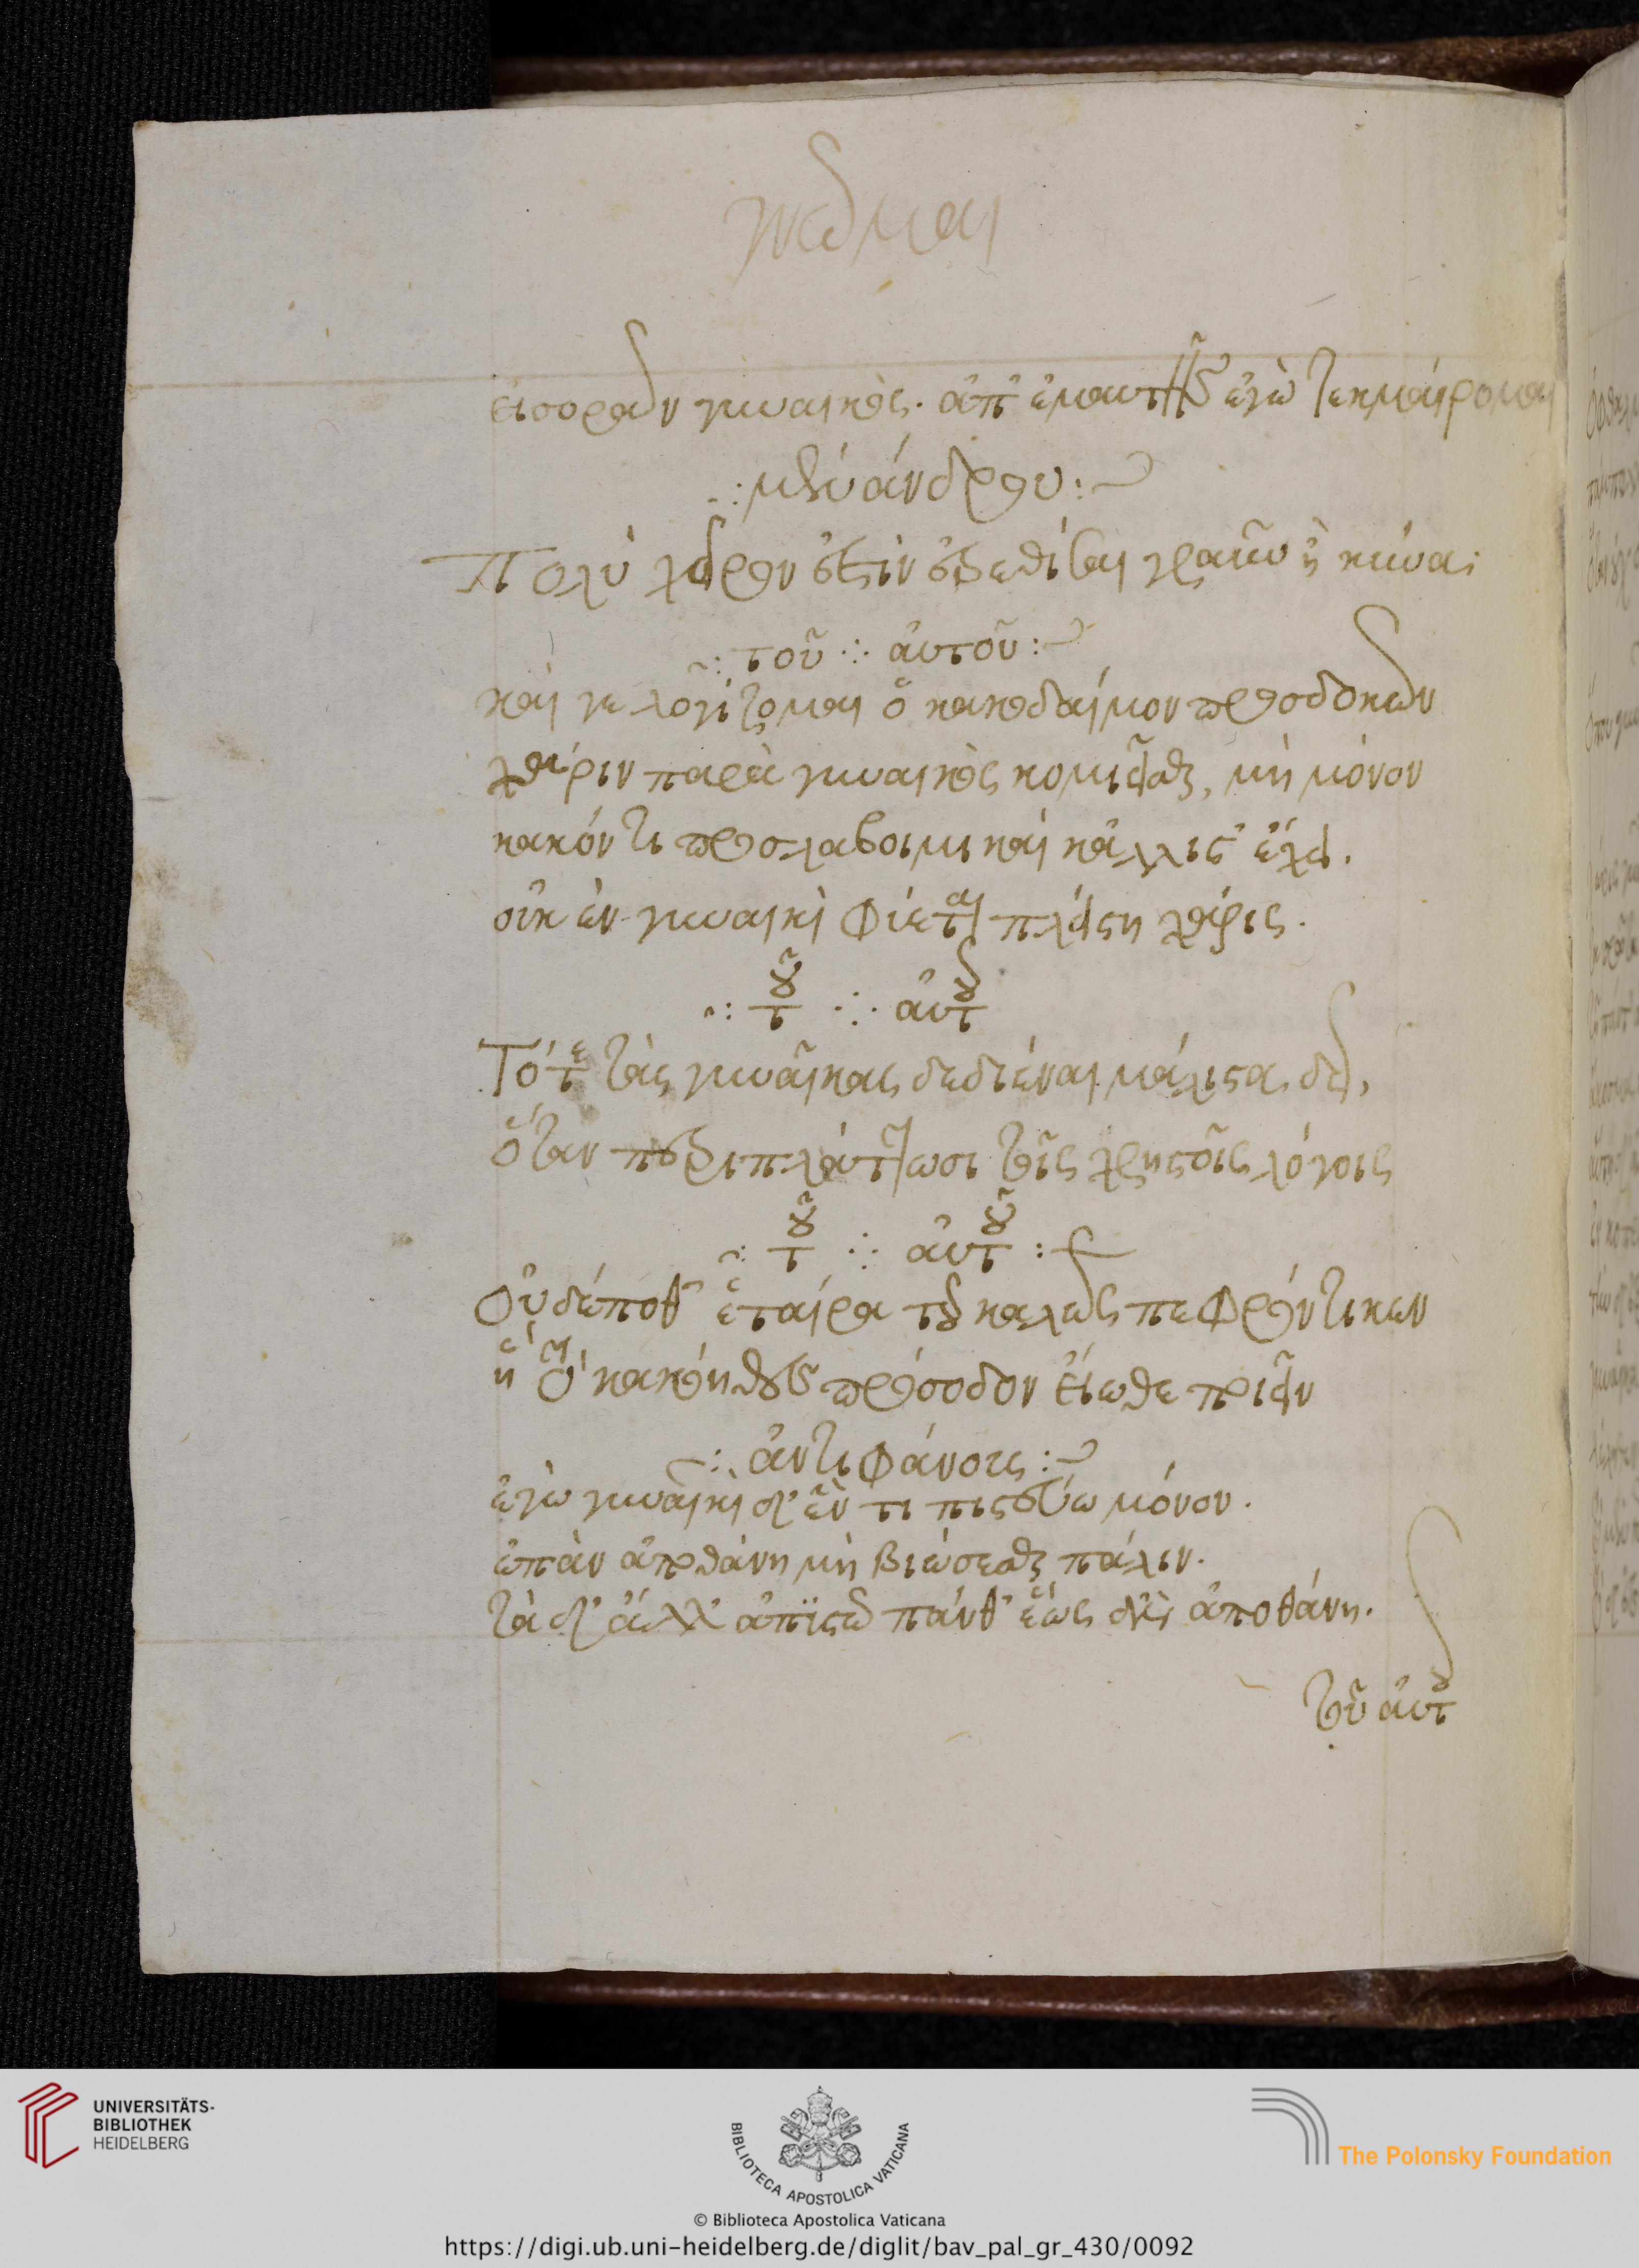 γνῶμαι
εἰσορᾶν γυναικός. ἀπ' ἐμαυτῆς ἐγὼ τεκμαίρομαι
μενάνδρου
Πολὺ χεῖρον ἐστὶν ἐρεθίσαι γραῦν ἢ κύνα:
τοῦ αὐτοῦ
καὶ γε λογίζομαι ὁ κακοδαίμον προσδοκῶν
χάριν παρὰ γυναικὸς κομιεῖσθαι, μὴ μόνον
κακόν τι προσλάβοιμι καὶ κάλλιστ' ἔχει.
οὐκ ἐν γυναικὶ φύεται πιστη χάρις.
τοῦ αὐτοῦ
Τότε τὰς γυναῖκας δεδιέναι μάλιστα δεῖ,
ὅταν περιπλάττωσι τοῖς χρηστοῖς λόγοις
τοῦ αὐτοῦ
Οὐδέποθ' ἑταίρα τοῦ καλῶς πεφρόντικεν
ἣ τὸ κακόηθες πρόσοδον εἴωθε ποιεῖν
ἀντιφάνους
ἐγὼ γυναικὶ δ' ἕν τι πιστεύω μόνον.
ἐπὰν ἀποθάνη μὴ βιώσεσθαι πάλιν.
τὰ δ' ἄλλ' ἀπιστῶ πάνθ' ἕως ἂν ἀποθάνη.
τοῦ αὐτοῦ
UNIVERSITÄTS-
BIBLIOTHEK
HEIDELBERG
BIBLIOTECA APOSTOLICA VATICANA
The Polonsky Foundation
© Biblioteca Apostolica Vaticana
https://digi.ub.uni-heidelberg.de/diglit/bav_pal_gr_430/0092